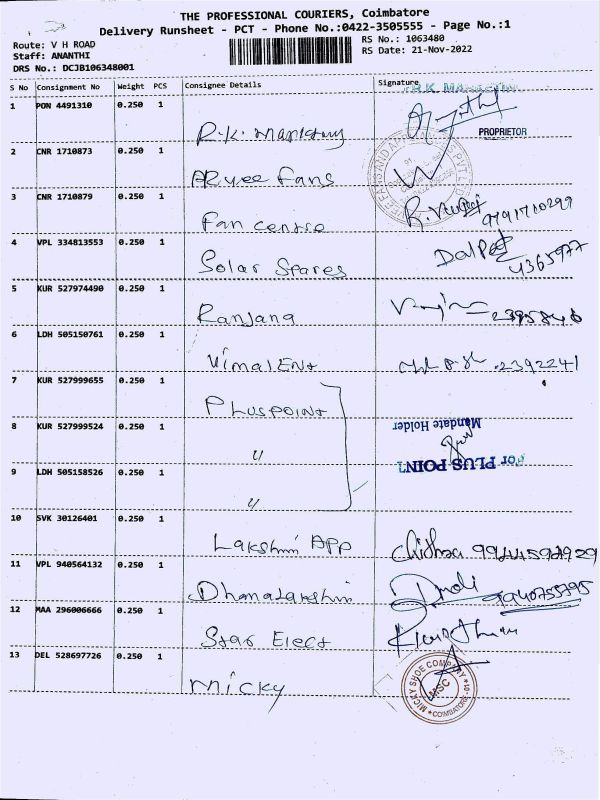 THE PROFESSIONAL COURIERS, Coimbatore
Delivery Runsheet - PCT - Phone No.:0422-3505555 - Page No.:1
Route: V H ROAD
Staff: ANANTHI
DRS No.: DCJB106348001
RS No.: 1063480
RS Date: 21-Nov-2022
S No Consignment No Weight PCS Consignee Details Signature
1 PON 4491310 0.250 1
R.K. Manickam
PROPRIETOR
2 CNR 1710873 0.250 1
Fans
3 CNR 1710879 0.250 1
Fan centre
4 VPL 334813553 0.250 1
Solar Spares
5 KUR 527974490 0.250 1
Ranjana 2395846
6 LDH 505150761 0.250 1
Vimal Ent 2392241
7 KUR 527999655 0.250 1
Pluspoint
8 KUR 527999524 0.250 1
"
For PLUS POINT
Mandate Holder
9 LDH 505158526 0.250 1
"
10 SVK 30126401 0.250 1
Lakshmi APP Chithra
11 VPL 940564132 0.250 1
Dhanalakshmi
12 MAA 296006666 0.250 1
Star Elect
13 DEL 528697726 0.250 1
Micky
MICKY SHOE COMPANY
MSC
COIMBATORE